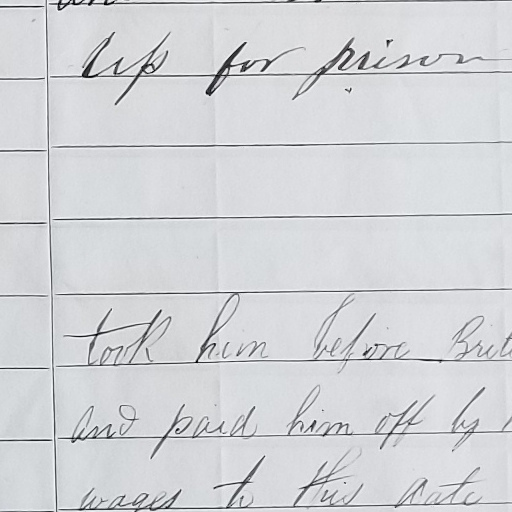 up for prison
took him before Brit
and paid him off by
wages to this date